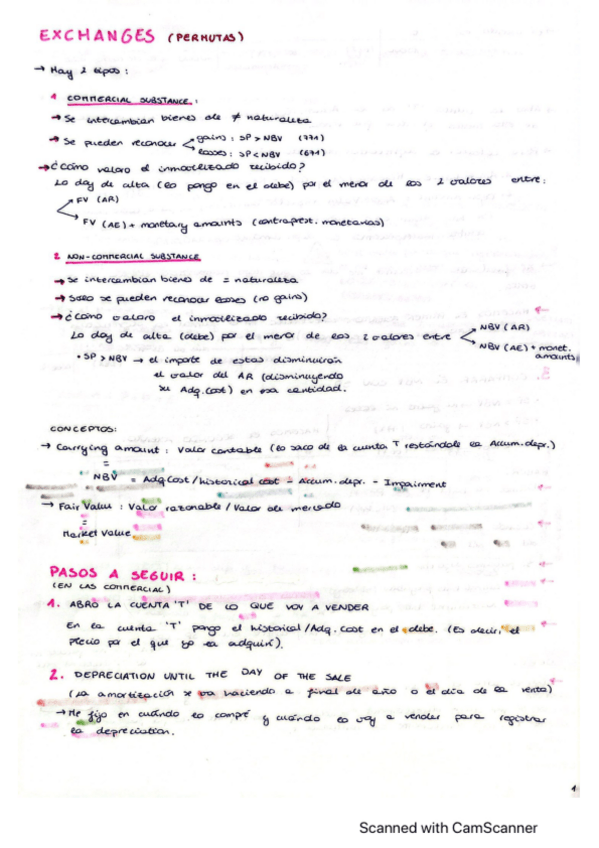 EXCHANGES (PERMUTAS)
→ Hay 2 tipos:
1 COMMERCIAL SUBSTANCE:
→ Se intercambian bienes de ≠ naturaleza
→ Se pueden reconocer gains: SP > NBV (771)
losses: SP < NBV (671)
→ ¿Cómo valoro el inmovilizado recibido?
Lo doy de alta (lo pongo en el debe) por el menor de los 2 valores entre:
FV (AR)
FV (AE) + monetary amounts (contraprest. monetarias)
2 NON-COMMERCIAL SUBSTANCE
→ Se intercambian bienes de = naturaleza
→ Solo se pueden reconocer losses (no gains)
→ ¿Cómo valoro el inmovilizado recibido?
Lo doy de alta (debe) por el menor de los 2 valores entre NBV (AR)
NBV (AE) + monet. amounts
• SP > NBV → el importe de estas disminuirán
el valor del AR (disminuyendo
su Adq. Cost) en esa cantidad.
CONCEPTOS:
→ Carrying amount: Valor contable (lo saco de la cuenta T restándole la Accum. depr.)
=
NBV = Adq Cost / historical cost - Accum. depr. - Impairment
→ Fair Value: Valor razonable / Valor de mercado
=
Market Value
PASOS A SEGUIR:
(EN LAS COMMERCIAL)
1. ABRO LA CUENTA 'T' DE LO QUE VOY A VENDER
En la cuenta 'T' pongo el historical / Adq. Cost en el debe. (Es decir, el
precio por el que yo la adquirí).
2. DEPRECIATION UNTIL THE DAY OF THE SALE
(La amortización se va haciendo a final de año o el día de la venta)
→ Me fijo en cuándo lo compré y cuándo lo voy a vender para registrar
la depreciation.
1
Scanned with CamScanner